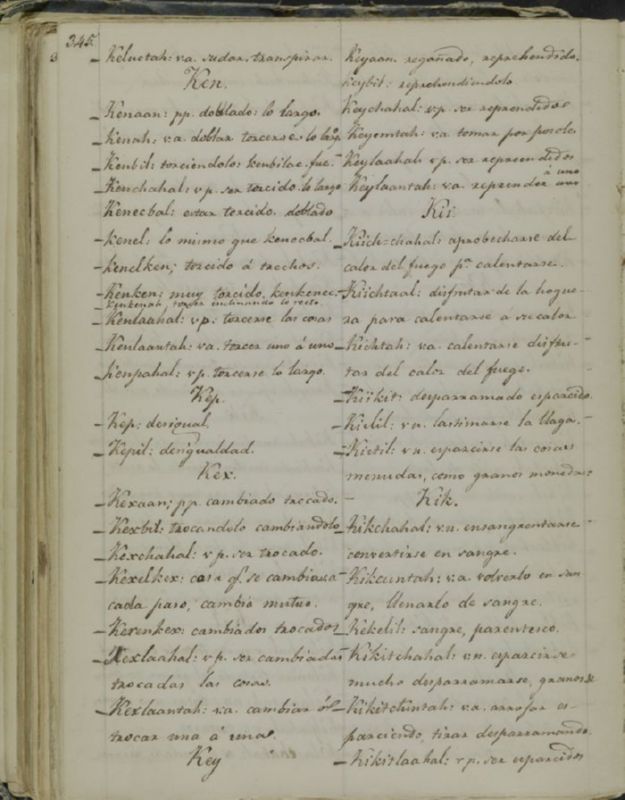 345.
Keluctah: va. sudar, transpirar.
Ken.
Kenaan: pp. doblado: lo largo.
Kenah: va. doblar torcerse lo largo
Kenbil: torciendolo: kenbilac fue.
Kenchahal: vp. ser torcido lo largo
Kenecbal: estar torcido doblado
kenel: lo mismo que kenecbal.
Kenelken; torcido á trechos.
Kenken; muy torcido, kenkenec.
Kenkenah, torcer inclinando lo recto.
Kenlaahal: vp: torcerse las cosas
Kenlaantah: va. torcer uno á uno
kenpahal: vp. torcerse lo largo.
Kep.
Kep: desigual.
Kepil: desigualdad.
Kex.
Kexaan; pp. cambiado trocado.
Kexbil: trocandolo cambiandolo
Kexchahal: vp. ser trocado.
Kexelkex: cosa qe. se cambia a
cada paso, cambio mutuo.
Kexenkex: cambiados trocados
Kexlaahal: vp. ser cambiadas
trocadas las cosas.
Kexlaantah: va. cambiar ó
trocar una á una.
Key
Keyaan. regañado, reprehendido.
keybil: reprehendiendolo
Keychahal: vp. ser reprendido
Keyemtah: va tomar por posole
Keylaahal vp. ser reprendidos
Keylaantah: va. reprender uno
á uno
Kii
Kiich-chahal: aprobecharse del
calor del fuego pa. calentarse.
Kiichtaal: disfrutar de la hogue
ra para calentarse á su calor
Kichtah: va. calentarse disfru-
tar del calor del fuego.
Kiikit: desparramado esparcido.
Kiilil: vn. lastimarse la llaga.
Kiitil: vn. esparcirse las cosas
menudas, como granos monedas
Kik.
Kikchahal: vn. ensangrentarse
convertirse en sangre.
Kikcuntah: va. volverlo en san
gre, llenarlo de sangre.
Kikelil: sangre, parentesco.
Kikitchahal: vn. esparcirse
mucho desparramarse, granos &
Kikitchintah: va. arrojar es-
parciendo, tirar desparramando.
Kikitlaahal: vp. ser esparcidos